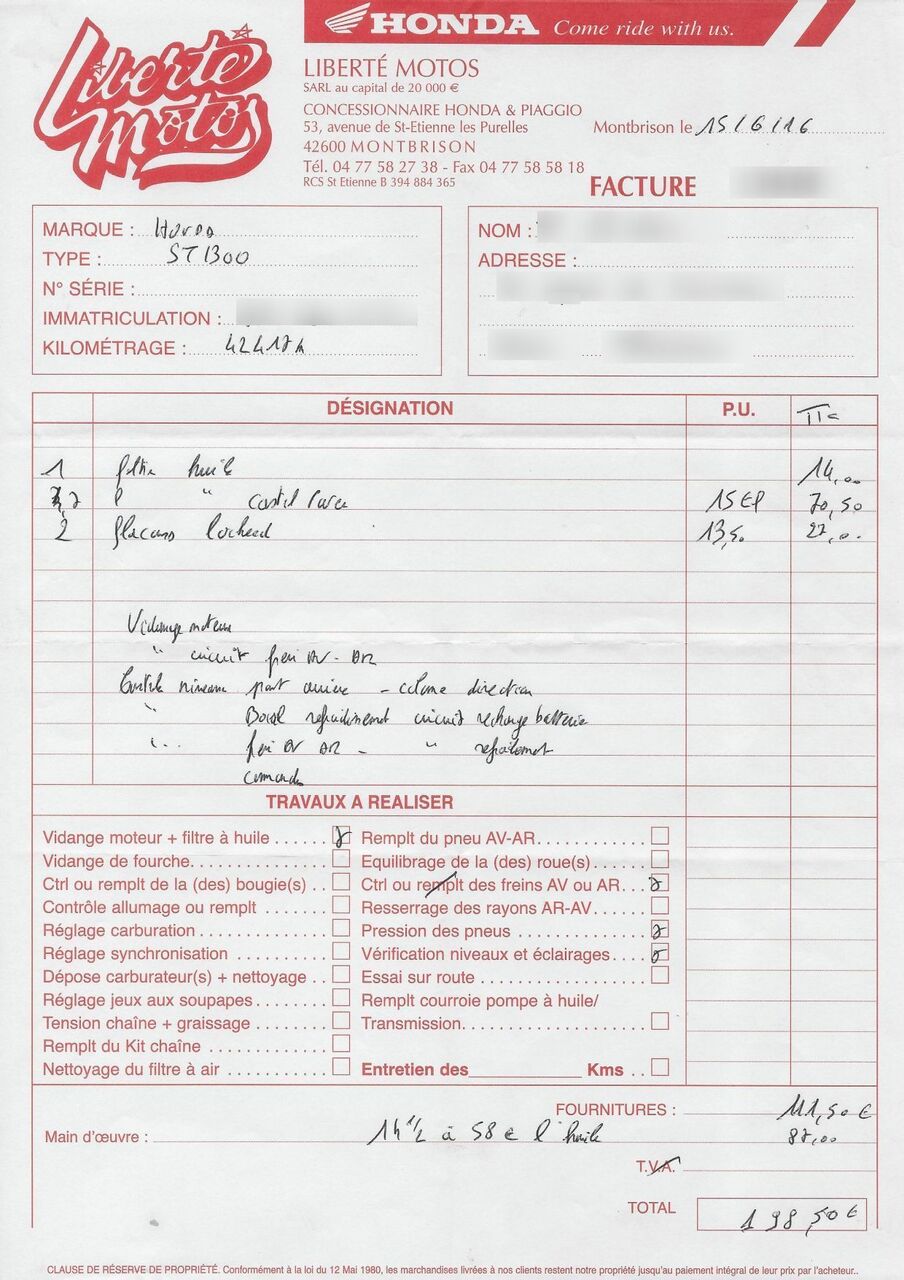 Liberté
Motos
HONDA Come ride with us.
LIBERTÉ MOTOS
SARL au capital de 20 000 €
CONCESSIONNAIRE HONDA & PIAGGIO
53, avenue de St-Etienne les Purelles
42600 MONTBRISON
Tél. 04 77 58 27 38 - Fax 04 77 58 58 18
RCS St Etienne B 394 884 365
Montbrison le 15/6/16
FACTURE
MARQUE : Honda
TYPE : ST1300
N° SÉRIE :
IMMATRICULATION :
KILOMÉTRAGE : 42417
NOM :
ADRESSE :
DÉSIGNATION P.U. TTC
1 filtre huile 14,00
l " 15 € l 70,50
2 flacons Lockeed 13,50 27,00
Vidange moteur
" circuit frein AV - AR
Contrôle niveau pont arrière - colonne direction
" Bocal refroidissement circuit recharge batterie
" frein AV AR - "
commandes
TRAVAUX A REALISER
Vidange moteur + filtre à huile
Vidange de fourche
Ctrl ou remplt de la (des) bougie(s)
Contrôle allumage ou remplt
Réglage carburation
Réglage synchronisation
Dépose carburateur(s) + nettoyage
Réglage jeux aux soupapes
Tension chaîne + graissage
Remplt du Kit chaîne
Nettoyage du filtre à air
Remplt du pneu AV-AR
Equilibrage de la (des) roue(s)
Ctrl ou remplt des freins AV ou AR
Resserrage des rayons AR-AV
Pression des pneus
Vérification niveaux et éclairages
Essai sur route
Remplt courroie pompe à huile/
Transmission
Entretien des Kms
FOURNITURES : 111,50 €
Main d'œuvre : 1h 1/2 à 58 € l'heure 87,00
T.V.A.
TOTAL 198,50 €
CLAUSE DE RÉSERVE DE PROPRIÉTÉ. Conformément à la loi du 12 Mai 1980, les marchandises livrées à nos clients restent notre propriété jusqu'au paiement intégral de leur prix par l'acheteur..